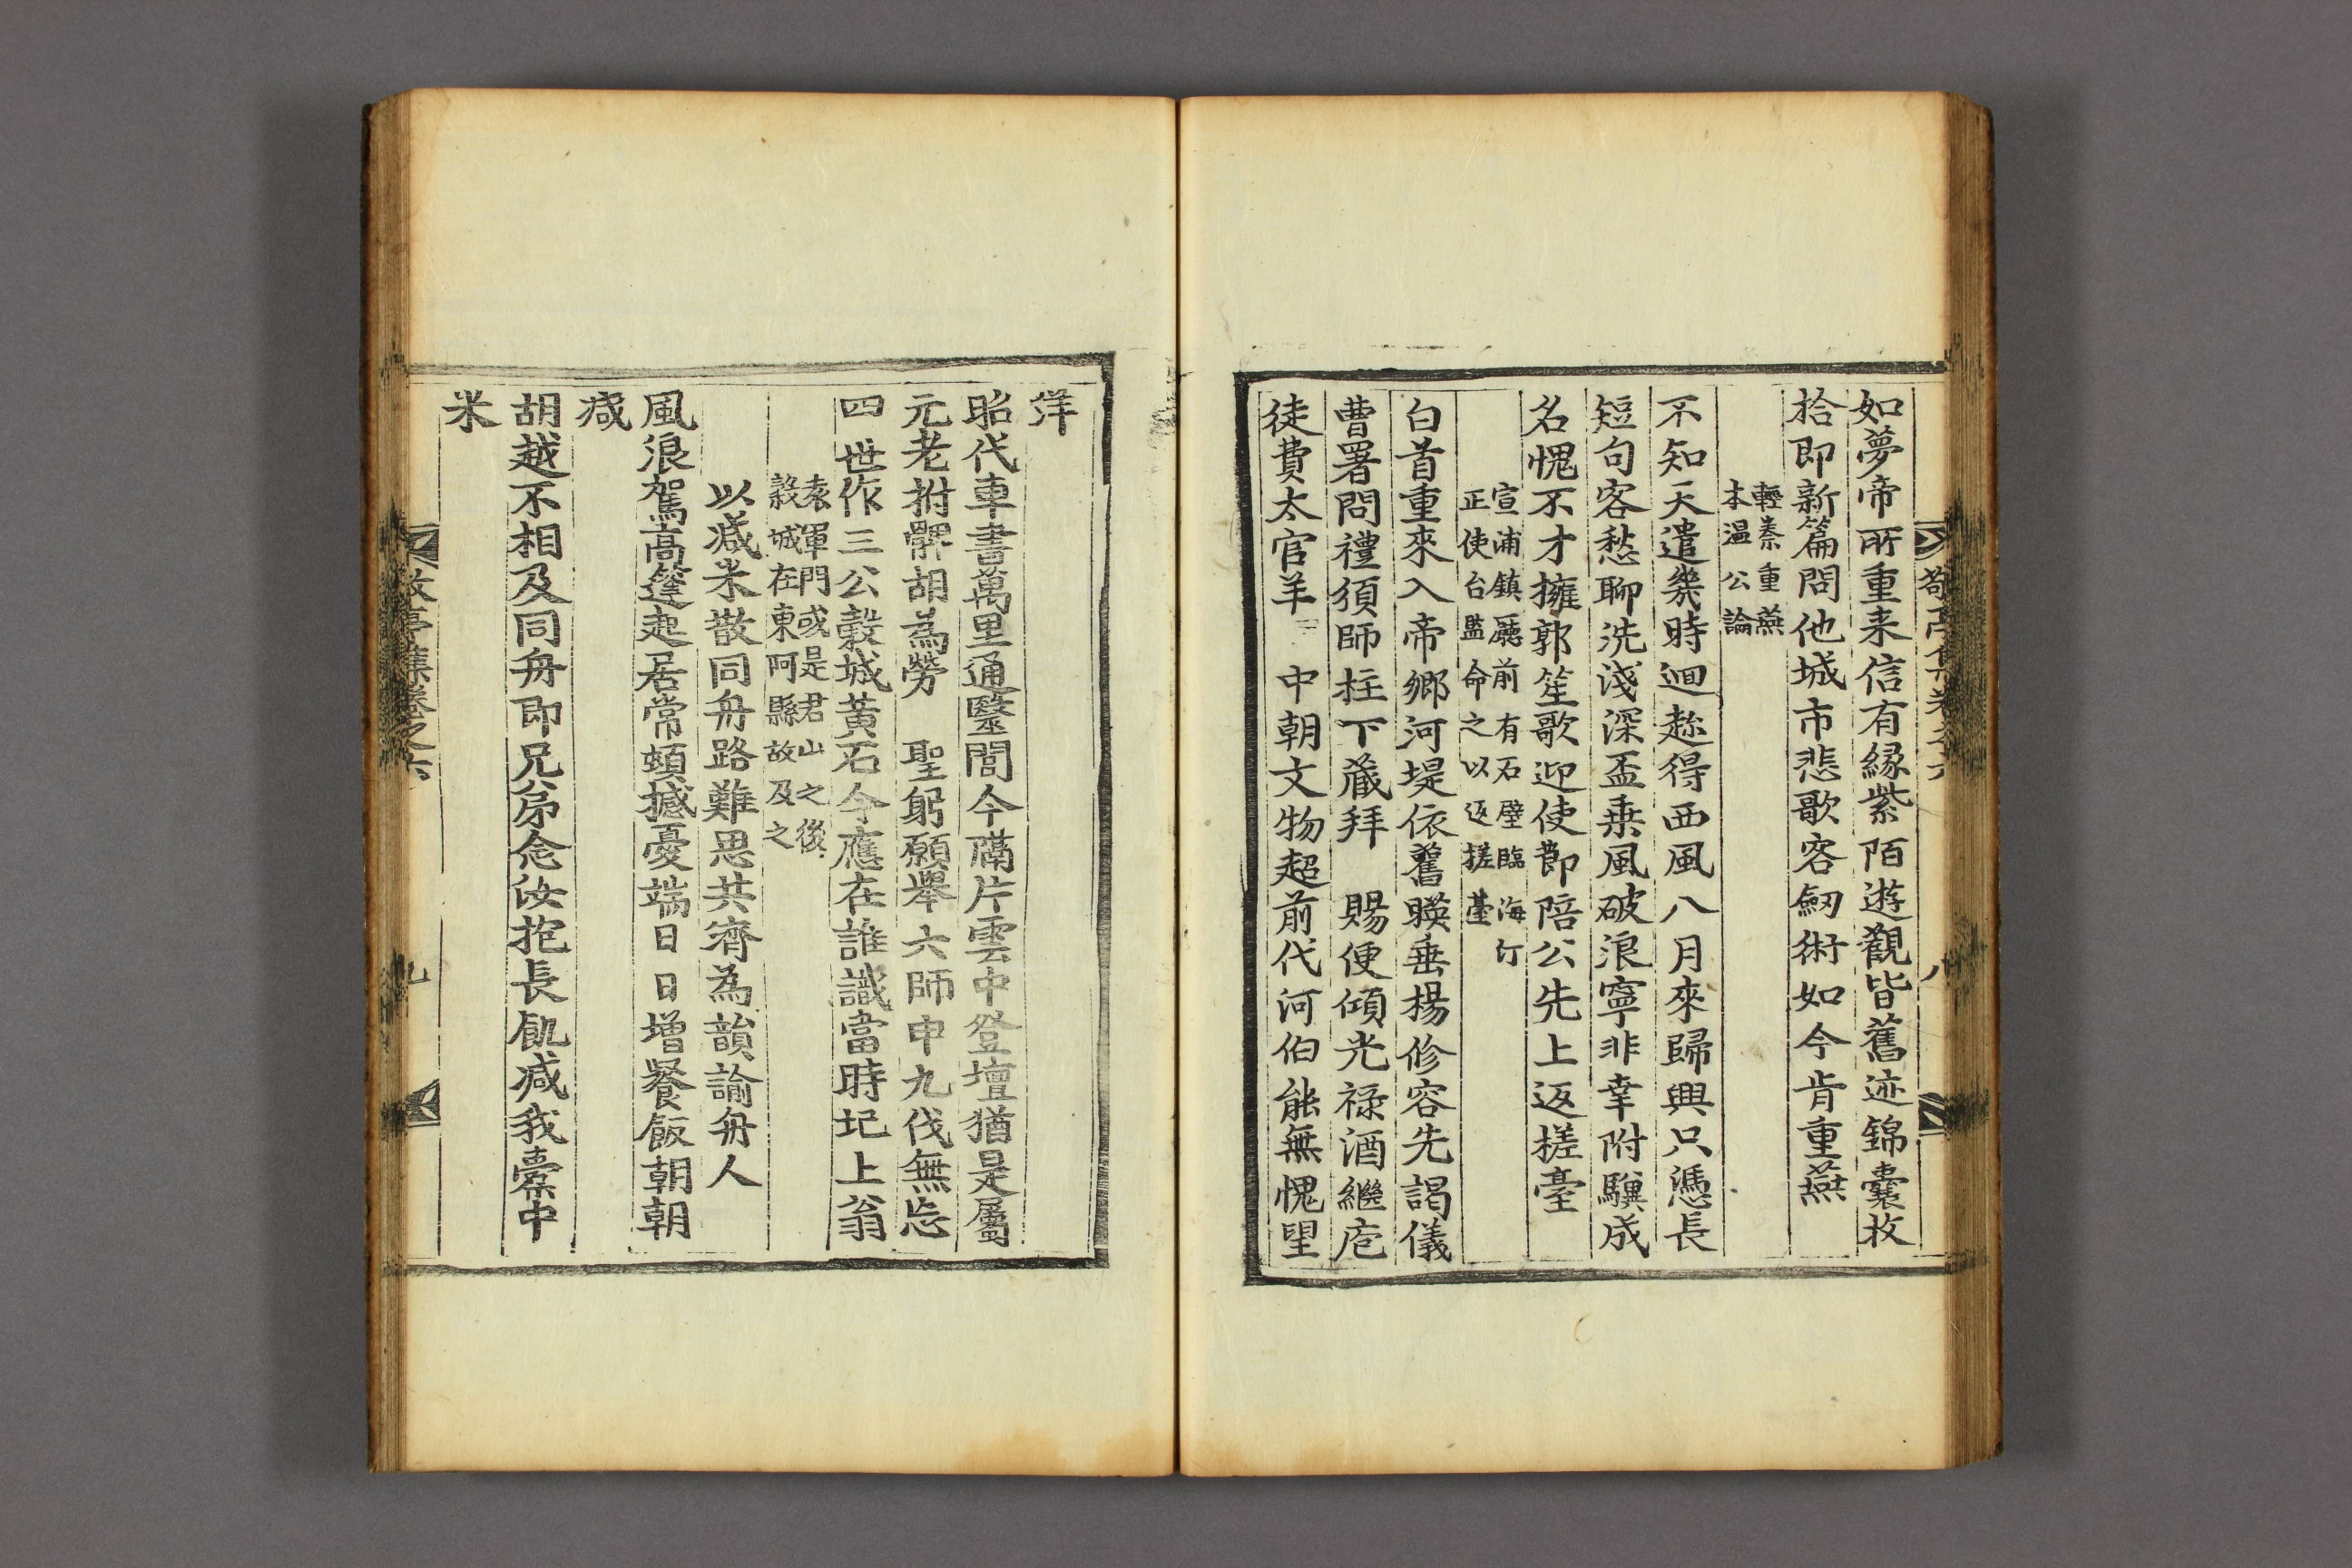 如夢帝所重来信有緣紫陌遊觀皆舊迹錦囊收
拾即新篇問他城市悲歌客劒術如今肯重燕
輕秦重燕
本温公論
不知天遣幾時迴趂得西風八月來歸興只憑長
短句客愁聊洗淺深盃乗風破浪寧非幸附驥成
名愧不才擁郭笙歌迎使節陪公先上返槎臺
宣浦鎮廳前有石壁臨海汀
正使台監命之以返槎臺
白首重來入帝鄉河堤依舊暎垂楊修容先謁儀
曹署問禮須師柱下藏拜 賜便傾光禄酒繼庖
徒費太官羊 中朝文物超前代河伯能無愧望
洋
昭代車書萬里通毉閭今隔片雲中登壇猶是屬
元老拊髀胡爲勞 聖躬願舉六師申九伐無忘
四世作三公穀城黃石今應在誰識當時圯上翁
袁軍門或是君山之後
穀城在東阿縣故及之
以减米散同舟路難思共濟為韻諭舟人
風浪駕高篷起居常頓撼憂端日日增餐飯朝朝
减
胡越不相及同舟即兄弟念汝抱長飢减我橐中
米
敬亭集卷之六
九